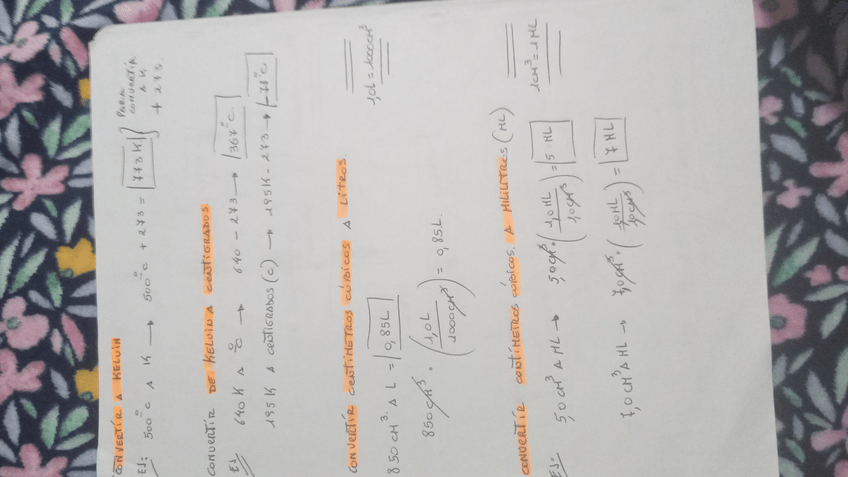 CONVERTIR A KELVIN
EJ: 500°C A K → 500°C + 273 = 773 K } PARA CONVERTIR A K + 273.
CONVERTIR DE KELVIN A CENTIGRADOS.
EJ. 640 K A °C → 640 - 273 → 367°C.
195K A CENTIGRADOS (C) → 195K - 273 → -77°C.
CONVERTIR CENTÍMETROS CÚBICOS A LITROS.
850 CM³ A L = 0,85L
1,0L = 1000CM³
850CM³ · (1,0L / 1000CM³) = 0,85L.
CONVERTIR CONTÍMETROS CÚBICOS A MILILITRES (ML)
EJ. 5,0CM³ A ML → 5,0CM³ · (1,0 ML / 1,0CM³) = 5 ML
1CM³ = 1ML
7,0CM³ A ML → 7,0CM³ · (1,0ML / 1,0CM³) = 7 ML